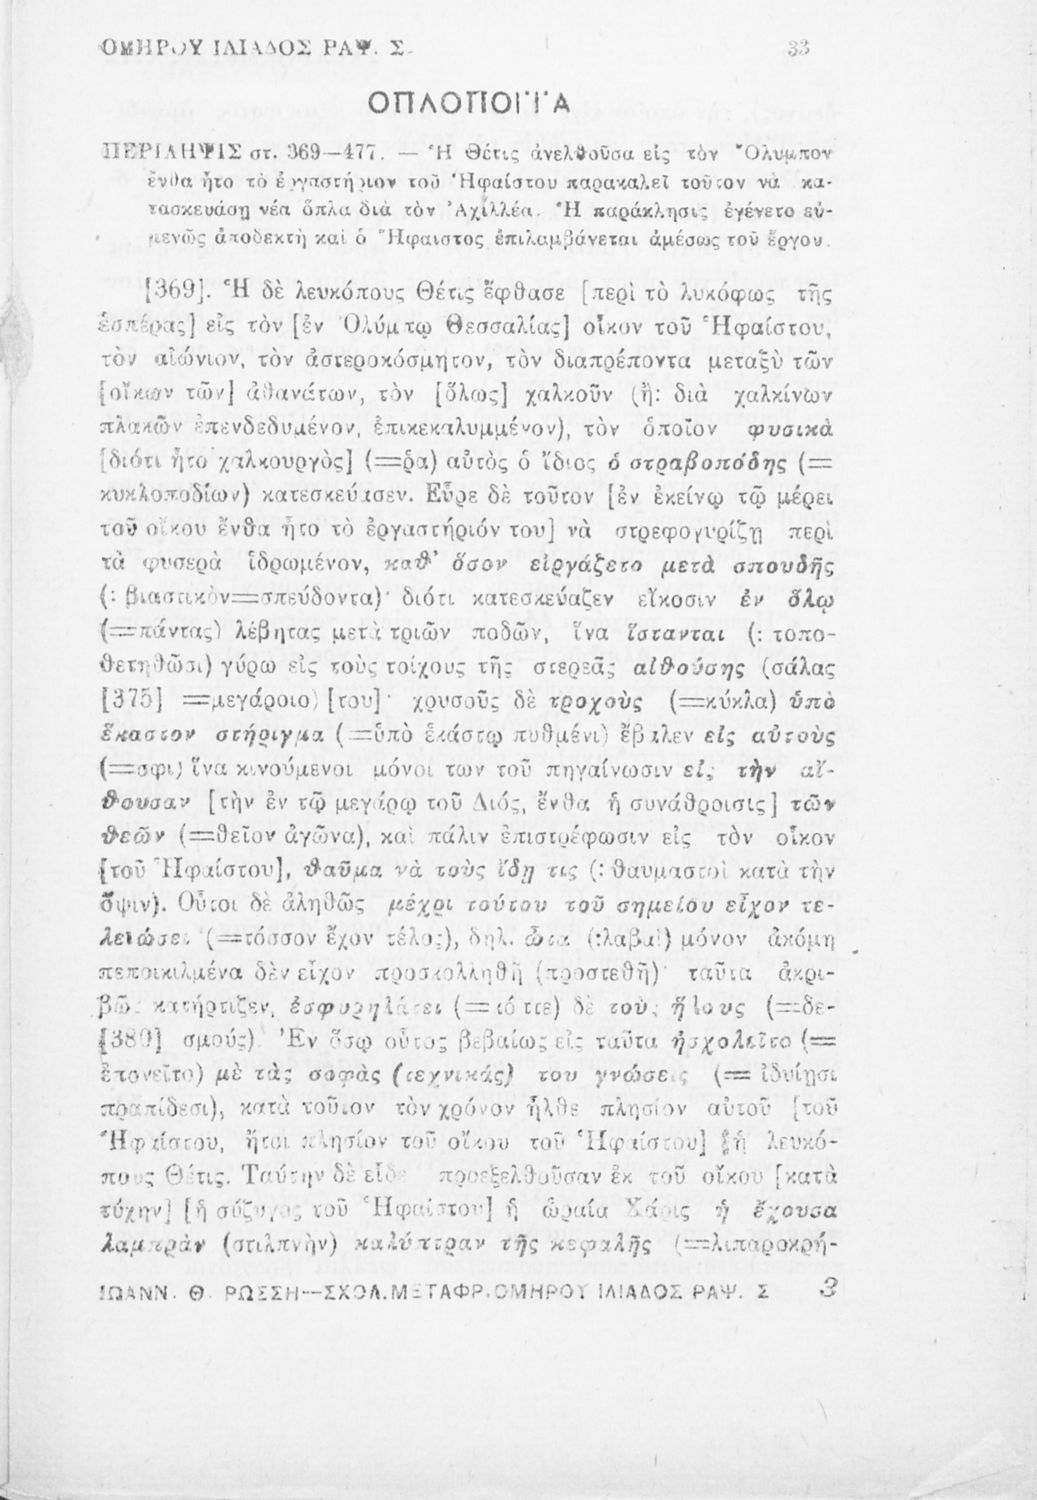 ΟΜΗΡΟΥ ΙΛΙΑΔΟΣ ΡΑΨ. Σ. 33
ΟΠΛΟΠΟΙΪΑ
ΠΕΡΙΛΗΨΙΣ στ. 369—477. — Ἡ Θέτις ἀνελθοῦσα εἰς τὸν Ὄλυμπον
ἔνθα ἦτο τὸ ἐργαστήριον τοῦ Ἡφαίστου παρακαλεῖ τοῦτον νὰ κα-
τασκευάσῃ νέα ὅπλα διὰ τὸν Ἀχιλλέα. Ἡ παράκλησις ἐγένετο εὐ-
μενῶς ἀποδεκτὴ καὶ ὁ Ἥφαιστος ἐπιλαμβάνεται ἀμέσως τοῦ ἔργου.
[369]. Ἡ δὲ λευκόπους Θέτις ἔφθασε [περὶ τὸ λυκόφως τῆς
ἑσπέρας] εἰς τὸν [ἐν Ὀλύμπῳ Θεσσαλίας] οἶκον τοῦ Ἡφαίστου,
τὸν αἰώνιον, τὸν ἀστεροκόσμητον, τὸν διαπρέποντα μεταξὺ τῶν
[οἴκων τῶν] ἀθανάτων, τὸν [ὅλως] χαλκοῦν (ἢ: διὰ χαλκίνων
πλακῶν ἐπενδεδυμένον, ἐπικεκαλυμμένον), τὸν ὁποῖον φυσικὰ
[διότι ἦτο χαλκουργὸς] (=ῥα) αὐτὸς ὁ ἴδιος ὁ στραβοπόδης (=
κυκλοποδίων) κατεσκεύασεν. Εὗρε δὲ τοῦτον [ἐν ἐκείνῳ τῷ μέρει
τοῦ οἴκου ἔνθα ἦτο τὸ ἐργαστήριόν του] νὰ στρεφογυρίζῃ περὶ
τὰ φυσερὰ ἱδρωμένον, καθ' ὅσον εἰργάζετο μετὰ σπουδῆς
(: βιαστικὸν=σπεύδοντα)· διότι κατεσκεύαζεν εἴκοσιν ἐν ὅλῳ
(=πάντας) λέβητας μετὰ τριῶν ποδῶν, ἵνα ἵστανται (: τοπο-
θετηθῶσι) γύρω εἰς τοὺς τοίχους τῆς στερεᾶς αἰθούσης (σάλας
[375] =μεγάροιο) [του]· χρυσοῦς δὲ τροχοὺς (=κύκλα) ὑπὸ
ἕκαστον στήριγμα (=ὑπὸ ἑκάστῳ πυθμένι) ἔβαλεν εἰς αὐτοὺς
(=σφι) ἵνα κινούμενοι μόνοι των τοῦ πηγαίνωσιν εἰς τὴν αἴ-
θουσαν [τὴν ἐν τῷ μεγάρῳ τοῦ Διός, ἔνθα ἡ συνάθροισις] τῶν
θεῶν (=θεῖον ἀγῶνα), καὶ πάλιν ἐπιστρέφωσιν εἰς τὸν οἶκον
[τοῦ Ἡφαίστου], θαῦμα νὰ τοὺς ἴδῃ τις (: θαυμαστοὶ κατὰ τὴν
ὄψιν). Οὗτοι δὲ ἀληθῶς μέχρι τούτου τοῦ σημείου εἶχον τε-
λειώσει (=τόσσον ἔχον τέλος), δηλ. ὦτα (:λαβαὶ) μόνον ἀκόμη
πεποικιλμένα δὲν εἶχον προσκολληθῆ (προστεθῆ)· ταῦτα ἀκρι-
βῶς κατήρτιζεν, ἐσφυρηλάτει (=κόπτε) δὲ τοὺς ἥλους (=δε-
[380] σμούς). Ἐν ὅσῳ οὗτος βεβαίως εἰς ταῦτα ἠσχολεῖτο (=
ἐπονεῖτο) μὲ τὰς σοφὰς (τεχνικάς) του γνώσεις (= ἰδυίῃσι
πραπίδεσι), κατὰ τοῦτον τὸν χρόνον ἦλθε πλησίον αὐτοῦ [τοῦ
Ἡφαίστου, ἤτοι πλησίον τοῦ οἴκου τοῦ Ἡφαίστου] ἡ λευκό-
πους Θέτις. Ταύτην δὲ εἶδε προεξελθοῦσαν ἐκ τοῦ οἴκου [κατὰ
τύχην] [ἡ σύζυγος τοῦ Ἡφαίστου] ἡ ὡραία Χάρις ἡ ἔχουσα
λαμπρὰν (στιλπνὴν) καλύπτραν τῆς κεφαλῆς (=λιπαροκρή-
ΙΩΑΝΝ. Θ. ΡΩΣΣΗ—ΣΧΟΛ.ΜΕΤΑΦΡ.ΟΜΗΡΟΥ ΙΛΙΑΔΟΣ ΡΑΨ. Σ 3